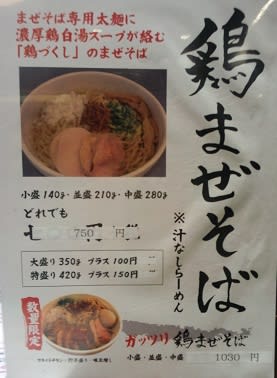 まぜそば専用太麺に
濃厚鶏白湯スープが絡む
「鶏づくし」のまぜそば
鶏まぜそば
※汁なしらーめん
小盛140g・並盛210g・中盛280g
どれでも
750 円
大盛り350g プラス100円
特盛り420g プラス150円
数量限定
ガッツリ 鶏まぜそば
小盛・並盛・中盛 1030 円